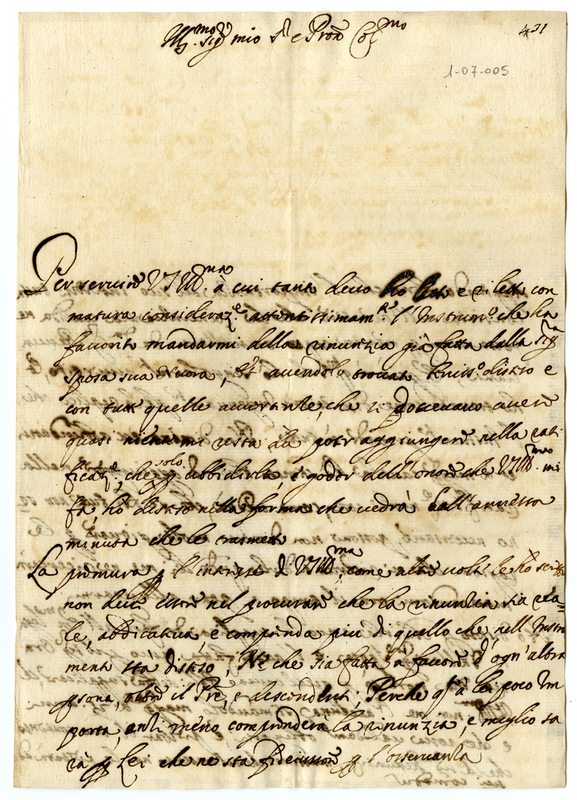 Ill.mo Sig.r mio S.r e Pron Col.mo
431
1-07-005
Per servire VS Ill.ma à cui tanto devo ho letto e riletto con
matura consideraz.e attentissimam.te l'Instrum.to che ha
favorito mandarmi della rinunzia già fatta dalla Sig.ra
sposa sua Nuora, et avendolo trovato disteso e
con tutte quelle avvertenze, che si potevano avere
quasi niente mi resta da poter aggiungere nella rati
ficat.e, che solo p ubbidirla e goder dell'onore che VS Ill.ma mi
fa ho disteso nella forma che vedrà dall'annessa
minuta che le trasmetto
La premura p l'interesse di VS Ill.ma, come altre volte le ho scritto
non deve essere nel procurare che la rinunzia sia rea=
le, abdicativa, e comprenda più di quello che nell'Instru
mento stà disteso, Nè che sia fatta à favore d'ogn'altra
psona, oltre il Pre, e descendenti; Perche qto à lei poco im
porta, anzi meno comprenderà la rinunzia, e meglio sa
rà p Lei che ne sta p l'osservanza